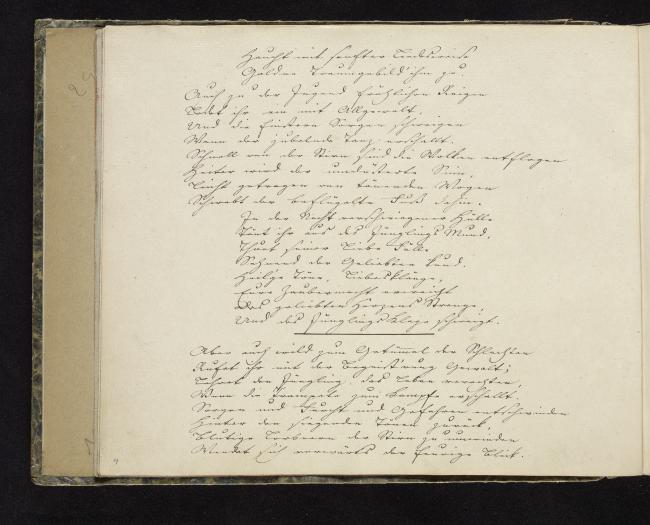 Haucht mit sanfter Liedesweise
Goldne Traumgebild' ihm zu.
Auch zu der Jugend fröhlichen Reigen
Ladet ihr ein mit Allgewalt.
Und die finstern Sorgen schweigen
Wenn der jubelnde Tanz erschallt.
Schnell von der Stirn sind die Wolken entflogen
Heiter wird der umdüsterte Sinn,
Leicht getragen von tönenden Wogen
Schwebt der beflügelte Fuß dahin.
In der Nacht verschwiegener Hülle
Tönt ihr aus des Jünglings Mund,
Thuet seiner Liebe Fülle
Sehnend der Geliebten kund.
Heil'ge Töne, Liebesklänge,
Eure Zaubermacht erweicht
Des geliebten Herzens Strenge,
Und des Jünglings Klage schweigt.
Aber auch wild zum Getümmel der Schlachten
Rufet ihr mit der Begeist'rung Gewalt;
Lehret den Jüngling, das Leben verachten,
Wenn die Trompete zum Kampfe erschallt.
Sorgen und Furcht und Gefahren entschwinden
Hinter den siegenden Tönen zurück,
Blutige Lorbeeren der Stirn zu umwinden
Wendet sich vorwärts der feurige Blick.